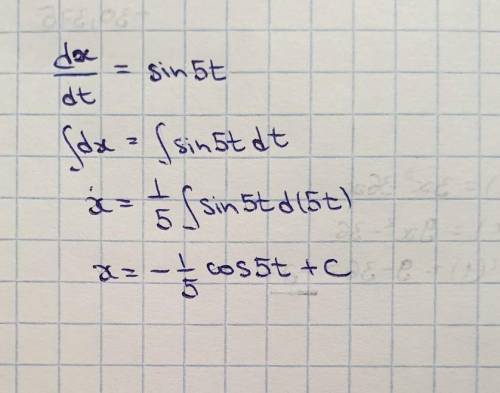 dx/dt = sin5t
∫dx = ∫sin5t dt
x = 1/5 ∫sin5t d(5t)
x = -1/5 cos5t + C